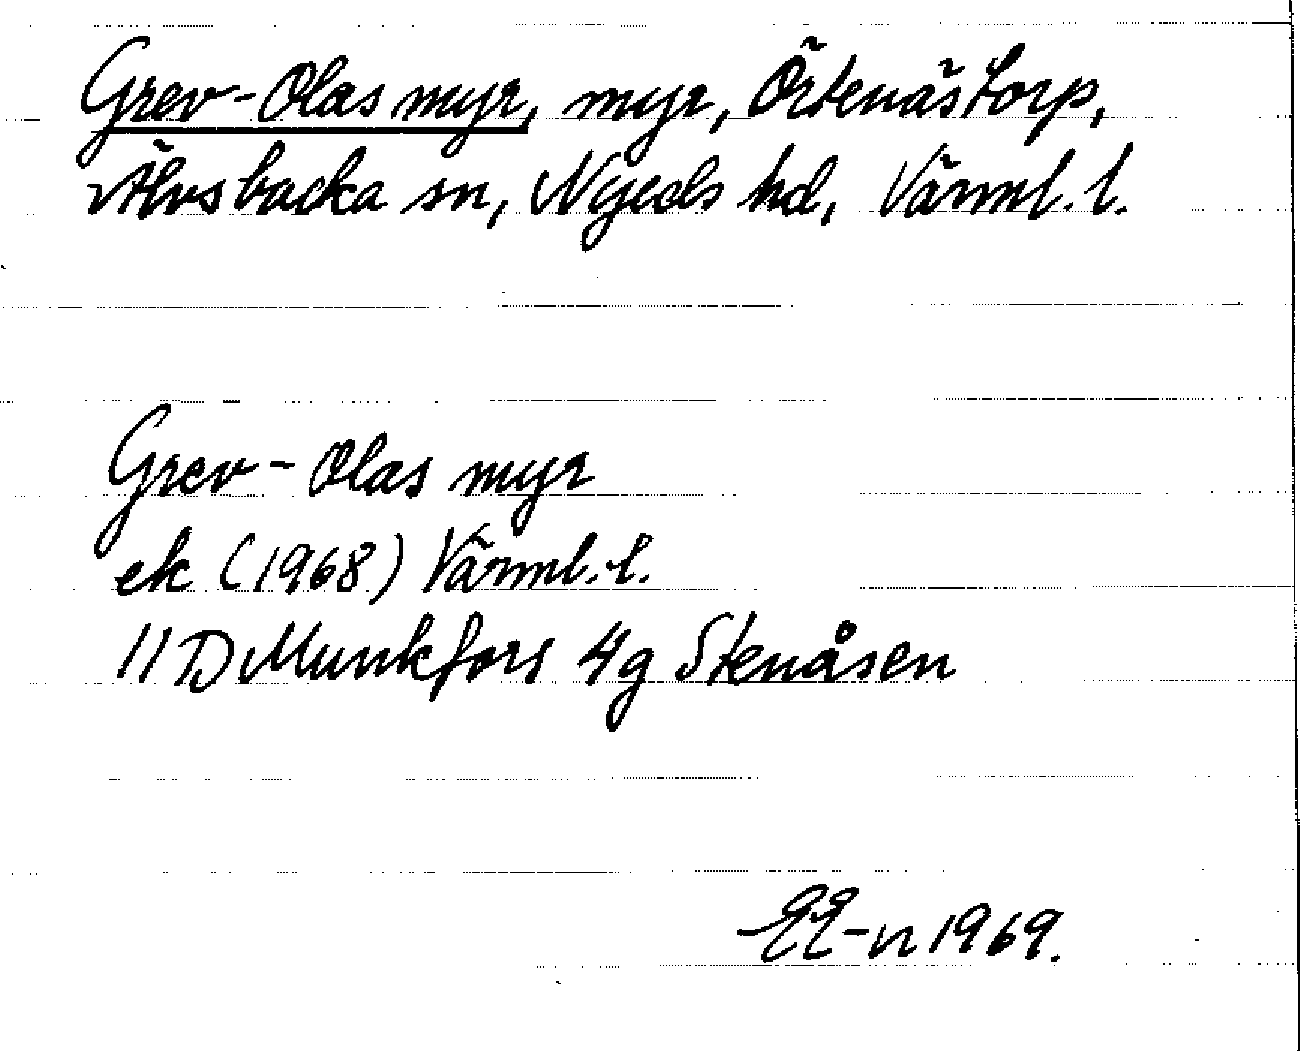 Grev-Olas myr, myr, Örtenästorp,
Älvsbacka sn, Nyeds hd, Värml. l.
Grev-Olas myr
ek (1968) Värml. l.
11D Munkfors 4g Stenåsen
EE-n 1969.